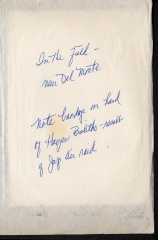 In the Field -
near Del Monte
Note bandage on hand
of Harper - result
of Jap Air raid.